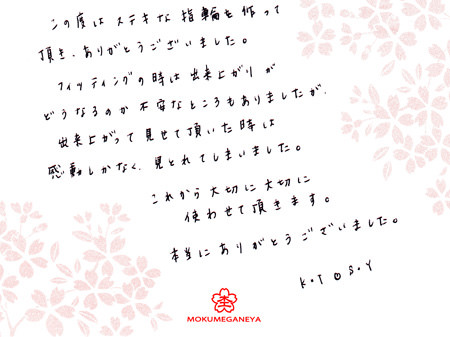 この度はステキな指輪を作って
頂き、ありがとうございました。
フィッティングの時は出来上がりが
どうなるのか不安なところもありましたが、
出来上がって見せて頂いた時は
感動しかなく、見とれてしまいました。
これから大切に大切に
使わせて頂きます。
本当にありがとうございました。
K・T S・Y
MOKUMEGANEYA